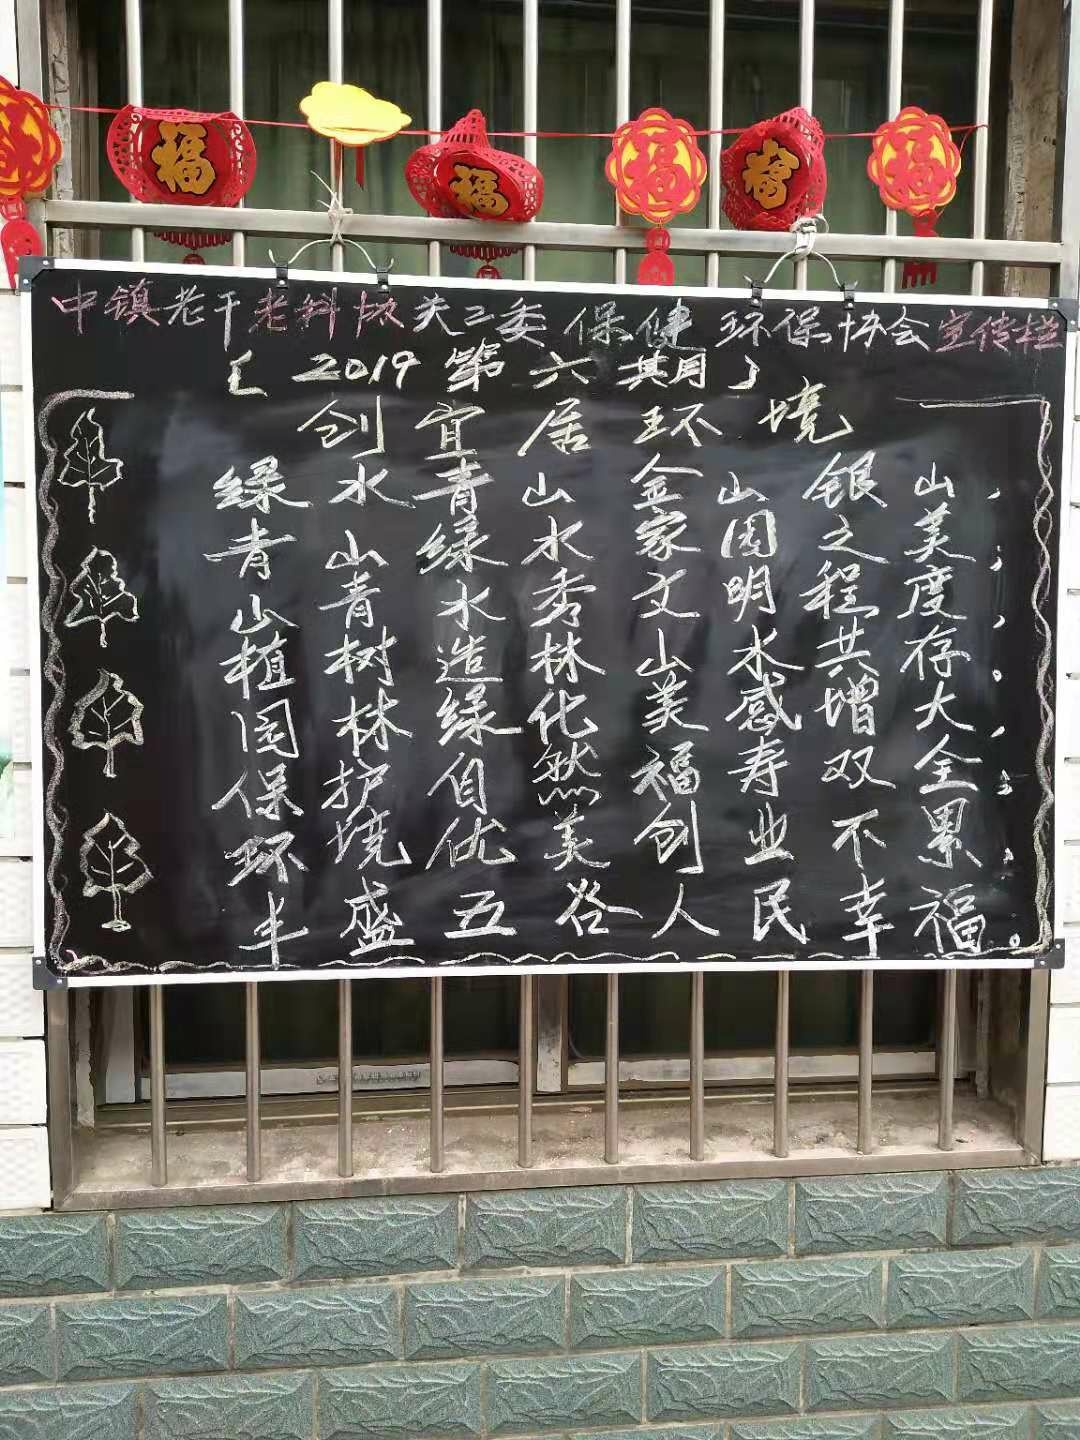 福 福 福 福 福
中镇老干老科协关工委保健环保协会宣传栏
［2019第六期］
创宜居环境
绿水青山金山银山，
青山绿水家园之美；
山青水秀文明程度，
植树造林山水共存。
园林绿化美感增大，
保护自然福寿双全；
环境优美创业不累；
丰盛五谷人民幸福。